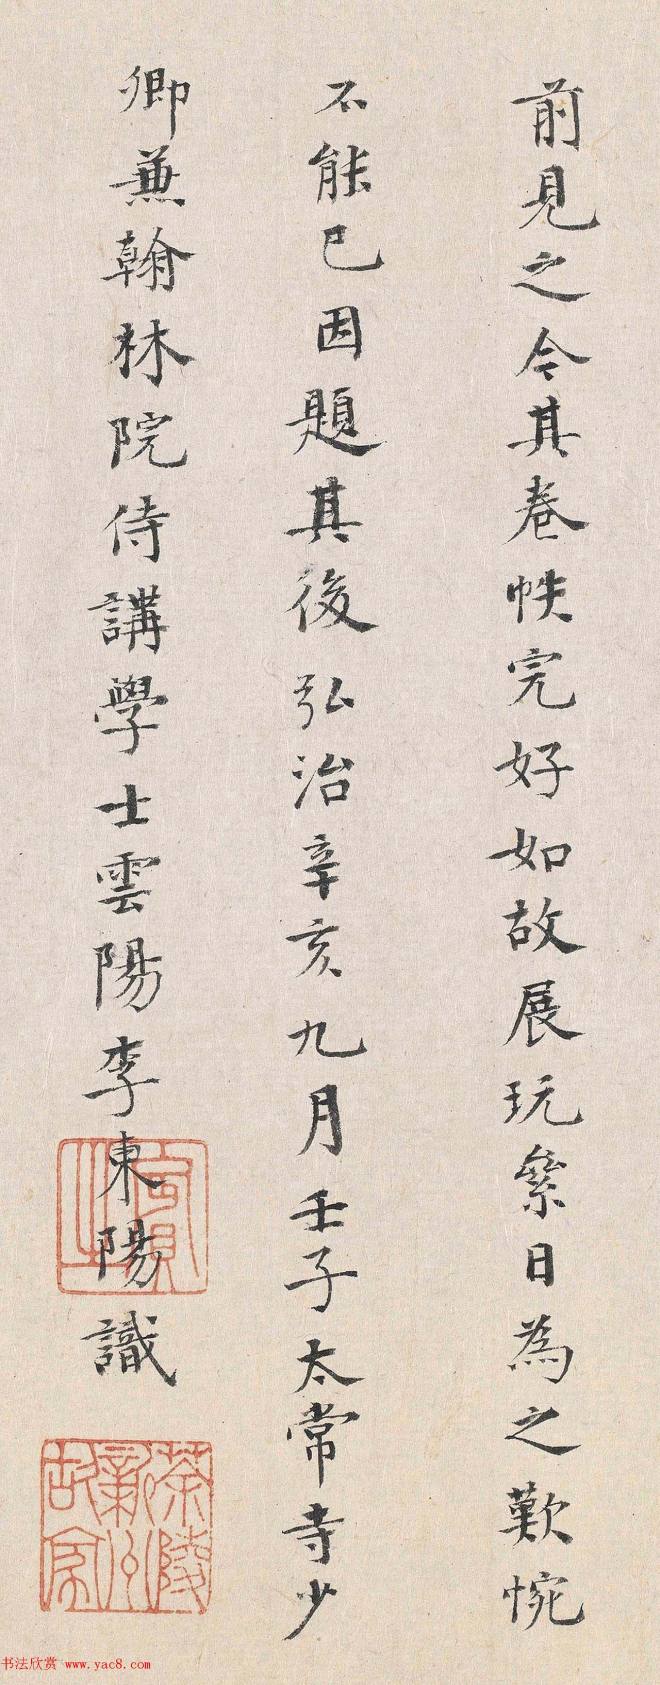 前見之今其卷帙完好如故展玩絫日為之歎惋
不能已因題其後弘治辛亥九月壬子太常寺少
卿兼翰林院侍講學士雲陽李東陽識
书法欣赏 www.yac8.com